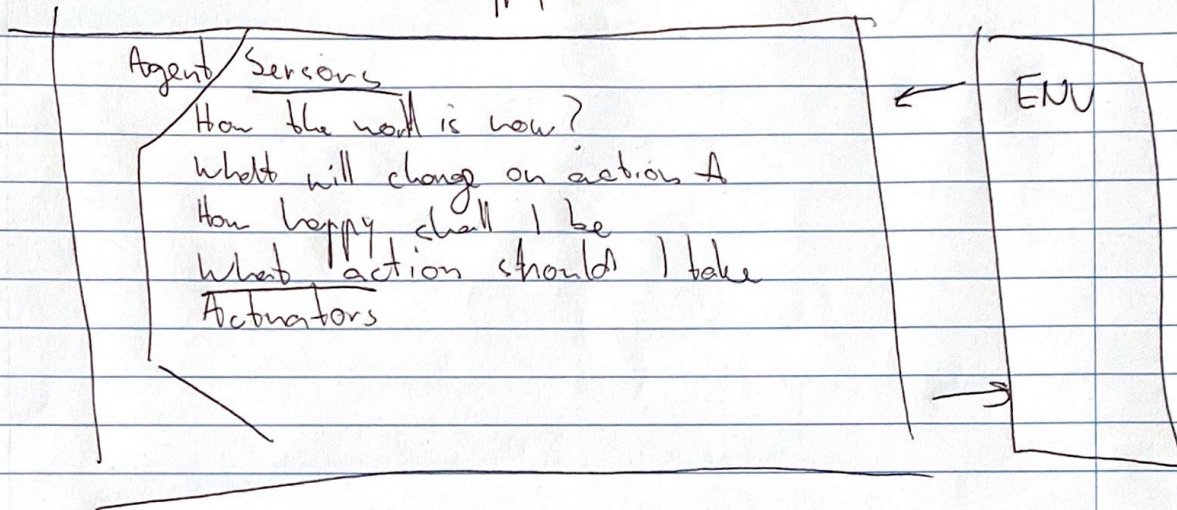 Agent Sensors
How the world is now?
What will change on action A
How happy shall I be
What action should I take
Actuators
ENV